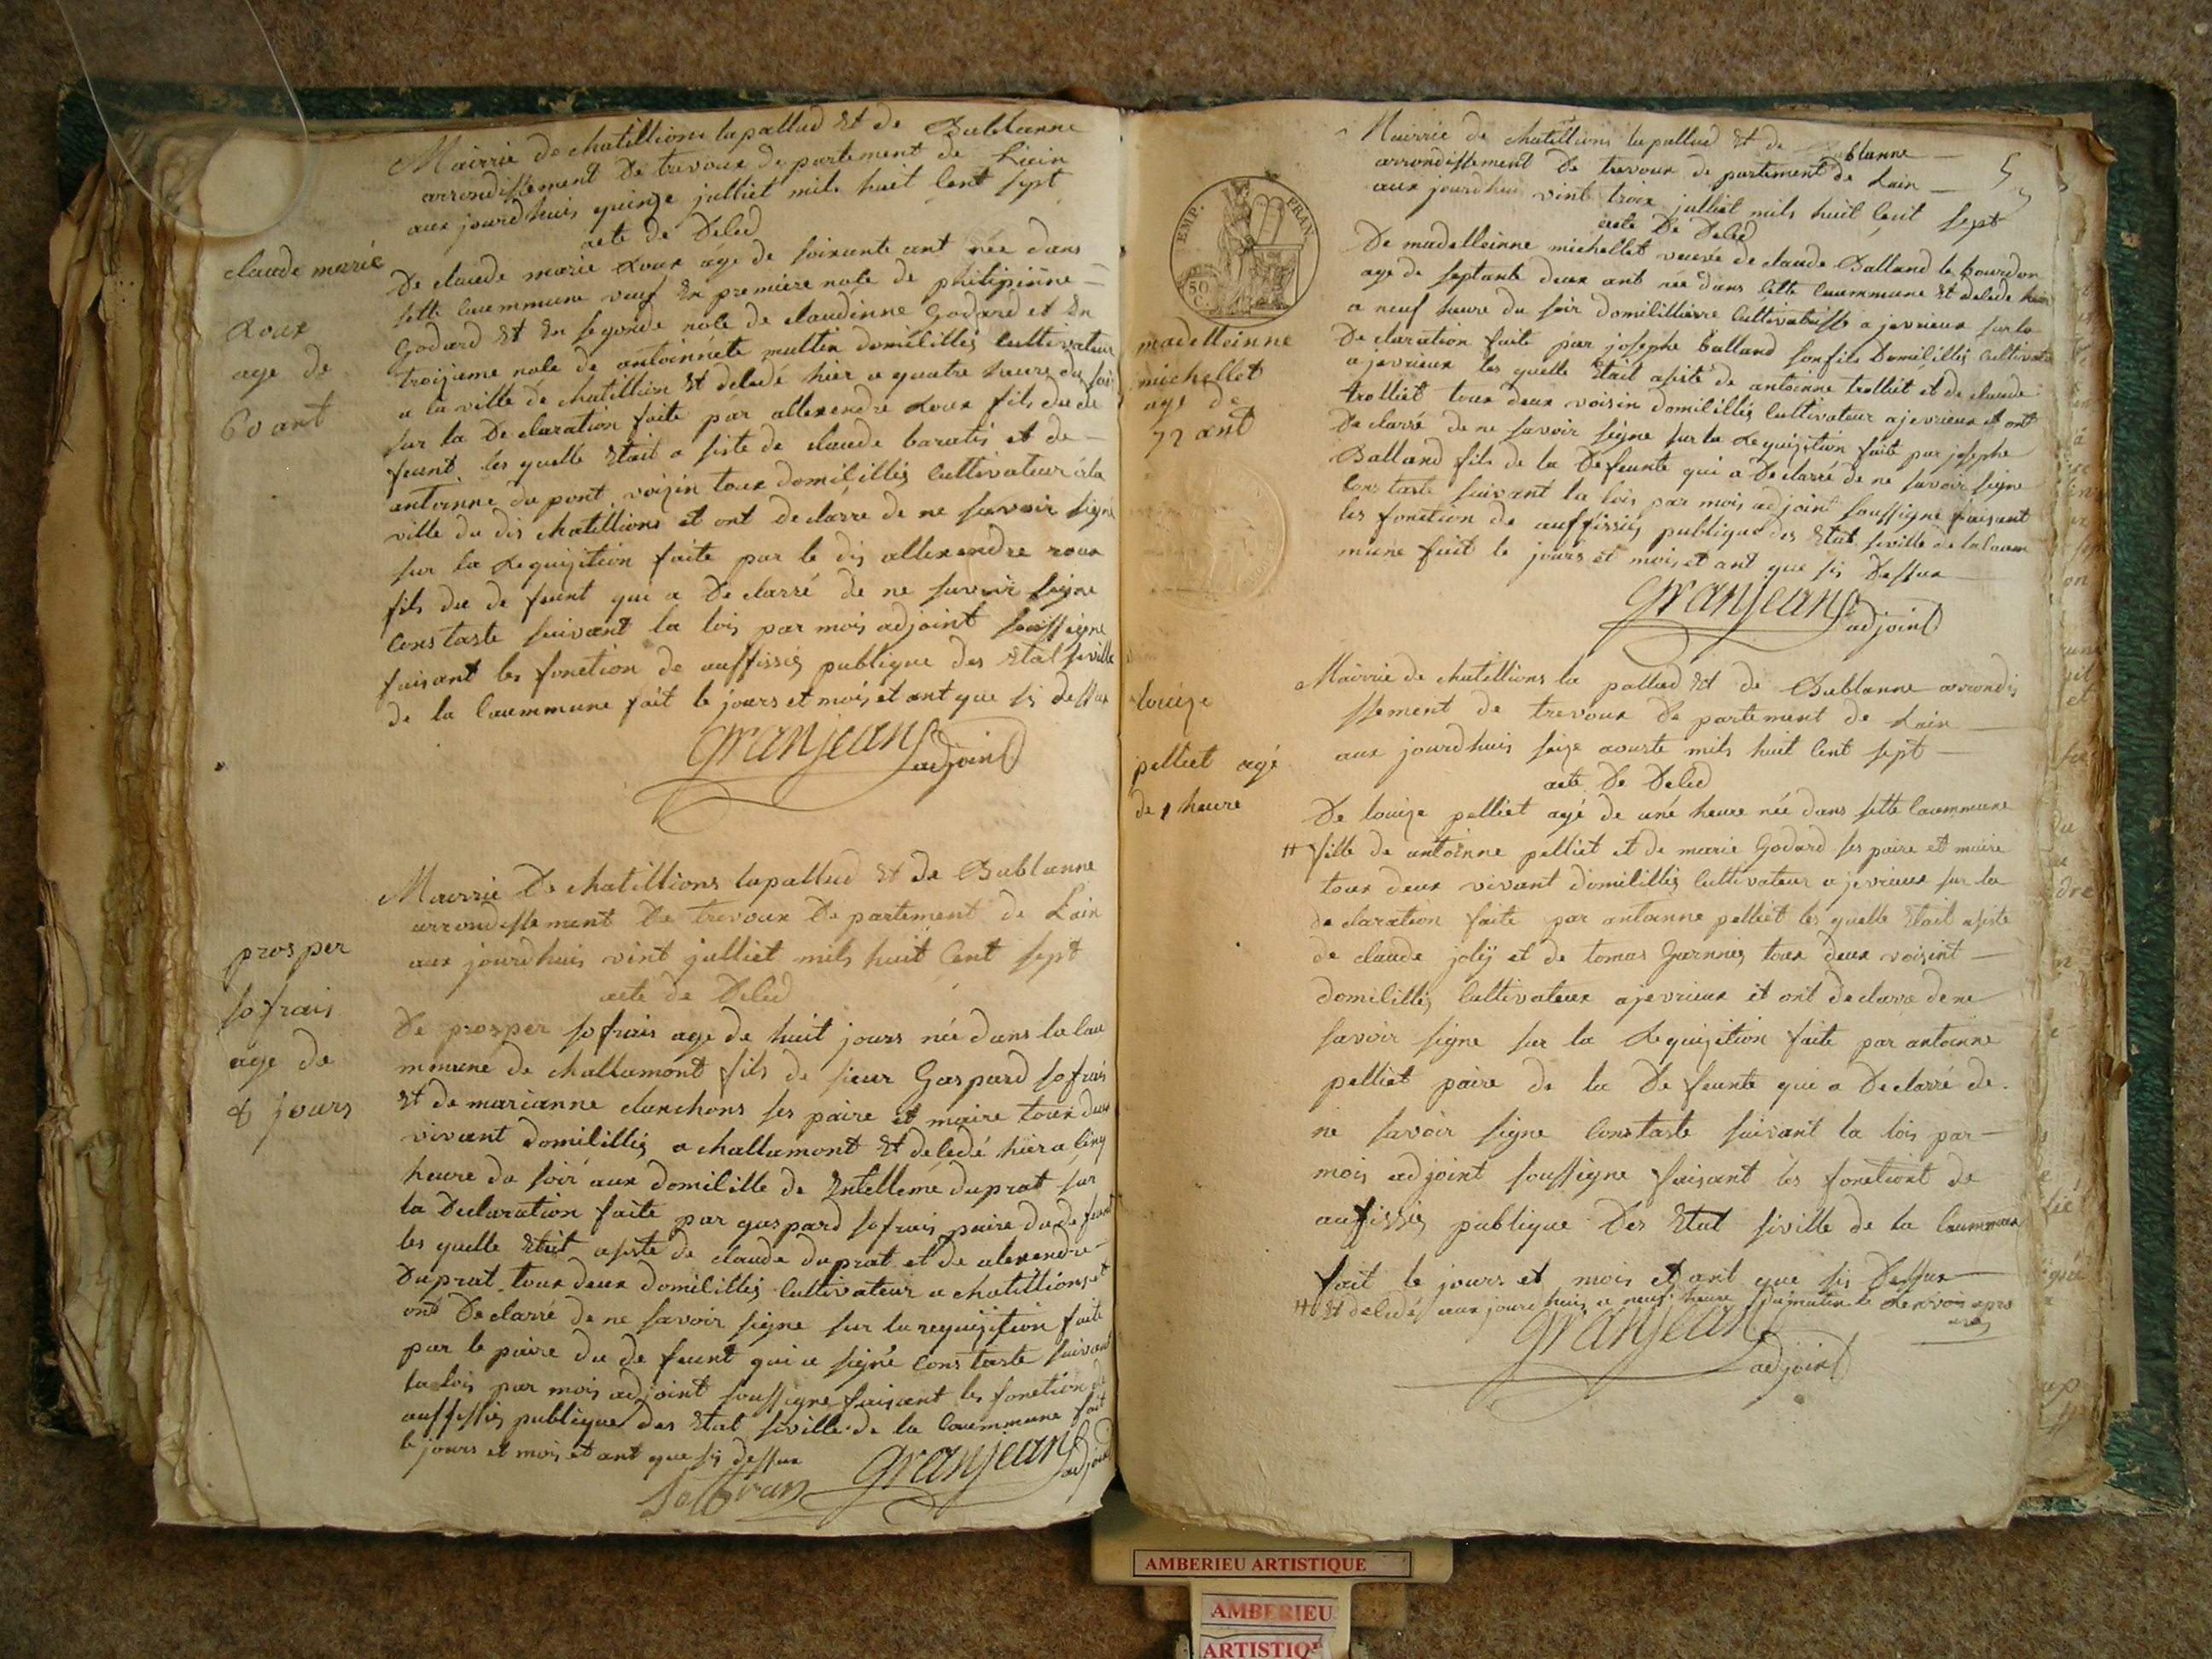 Mairrie de chatillions lapallud Et de Bublanne
arrondissement De trevoux departement de Lain
aux jourdhuis quinze julliet mils huit Cent sept
acte de Deled
claude marie
Roux
age de
60 ant
De claude marie Roux âge de soixante ant née dans
sette Caummune veuf En premiere nole de philipinne
Godard Et En segonde nole de claudinne Godard et En
troizieme nole de antoinnete muttin domicilliés Cultivateur
a la ville de chatillion Et deledé hier a quatre heure du soir
sur la Declaration faite par allexendre Roux fils du de
feunt les quelle Etait a siste de claude baratis et de
antoinne du pont voizin toux domicilliés Cultivateur a la
ville du dis chatillions et ont declarre de ne savoir signé
sur la Requizition faite par le dis allexendre roux
fils du de feunt qui a Declarré de ne savoir signe
Constaste suivant la lois par mois adjoint soussigne
faisant les fonction de auffissiés publique des Etat seville
de la Caummune fait le jours et mois et ant que sis dessux
Granjean adjoint
Mairrie De chatillions lapallud Et de Bublanne
arrondissement De trevoux Departement de Lain
aux jourdhuis vint julliet mils huit Cent sept
acte de Deled
prosper
sofrais
age de
8 jours
De prosper sofrais age de huit jours née dans la Cau
mmune de challamont fils de sieur Gaspard sofrais
Et de marianne clanchons ses paire et maire toux deux
vivant domicilliés a challamont Et deledé hier a Cinq
heure du soir aux domicille de Entellemé duprat sur
la Declaration faite par gaspard sofrais paire du de feunt
les quelle Etait asiste de claude duprat et de alexendre
Duprat toux deux domicilliés Cultivateur a chatillions et
ont Declarré de ne savoir signe sur la requizition faite
par le paire du de feunt qui a signé Constaste suivant
la lois par mois adjoint soussigne faisant les fonction de
auffissiés publique des Etat siville de la Caummune fait
le jours et mois et ant que sis dessux
Granjean adjoint
Mairrie de chatillions lapallud Et de Bublanne
arrondissement De trevoux departement de Lain
aux jourdhuis vint troix julliet mils huit Cent sept
acte De Deled
EMP. FRAN.
50 C.
madelleinne
michellet
age de
72 ant
De madelleinne michellet veuve de claude Balland le bourdon
age de septante deux ant née dans Cette Caummune Et deledé hier
a neuf heure du soir domicilliere Cultivatrisse a jevrieux sur la
Declaration faite par josephe balland son fils Domicilliés Cultivate
a jevrieux les quelle Etait asiste de antoinne trolliet et de claude
trolliet toux deux voisin domicilliés Cultivateur a jevrieux et ont
Declarré de ne savoir signe sur la Requizition faite par josephe
Balland fils de la Defeunte qui a Declarré de ne savoir signe
Constaste suivant la lois par mois adjoint soussigne faisant
les fonction de auffissiés publique des Etat siville de la Caum
mune fait le jours et mois et ant que sis Dessux
Granjean adjoint
Mairrie de chatillions la pallud Et de Bublanne arrondis
ssement de trevoux Departement de Lain
aux jourdhuis seize aouste mils huit Cent sept
acte De Deled
louize
pelliet agé
de 1 heure
De louize pelliet agé de une heure née dans sette Caummune
# fille de antoinne pelliet et de marie Godard ses paire et maire
toux deux vivant domicilliés Cultivateur a jevrieux sur la
declaration faite par antoinne pelliet les quelle Etait asiste
de claude jolij et de tomas Garnnies toux deux voisint
domicilliés Cultivateur a jevrieux et ont declarre de ne
savoir signe sur la Requizition faite par antoinne
pelliet paire de la Defeunte qui a Declarré de
ne savoir signe Constaste suivant la lois par
mois adjoint soussigne faisant les fonctiont de
auffissiés publique Des Etat siville de la Caummune
fait le jours et mois et ant que sis Dessux
# Et deledé aux jourdhuis a neuf heure Dumatin le Renvois apro
uvés
Granjean adjoint
AMBERIEU ARTISTIQUE
AMBERIEU
ARTISTIQU